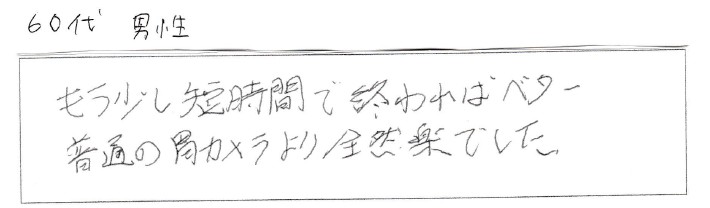 60代 男性
もう少し短時間で終わればベター
普通の胃カメラより全然楽でした